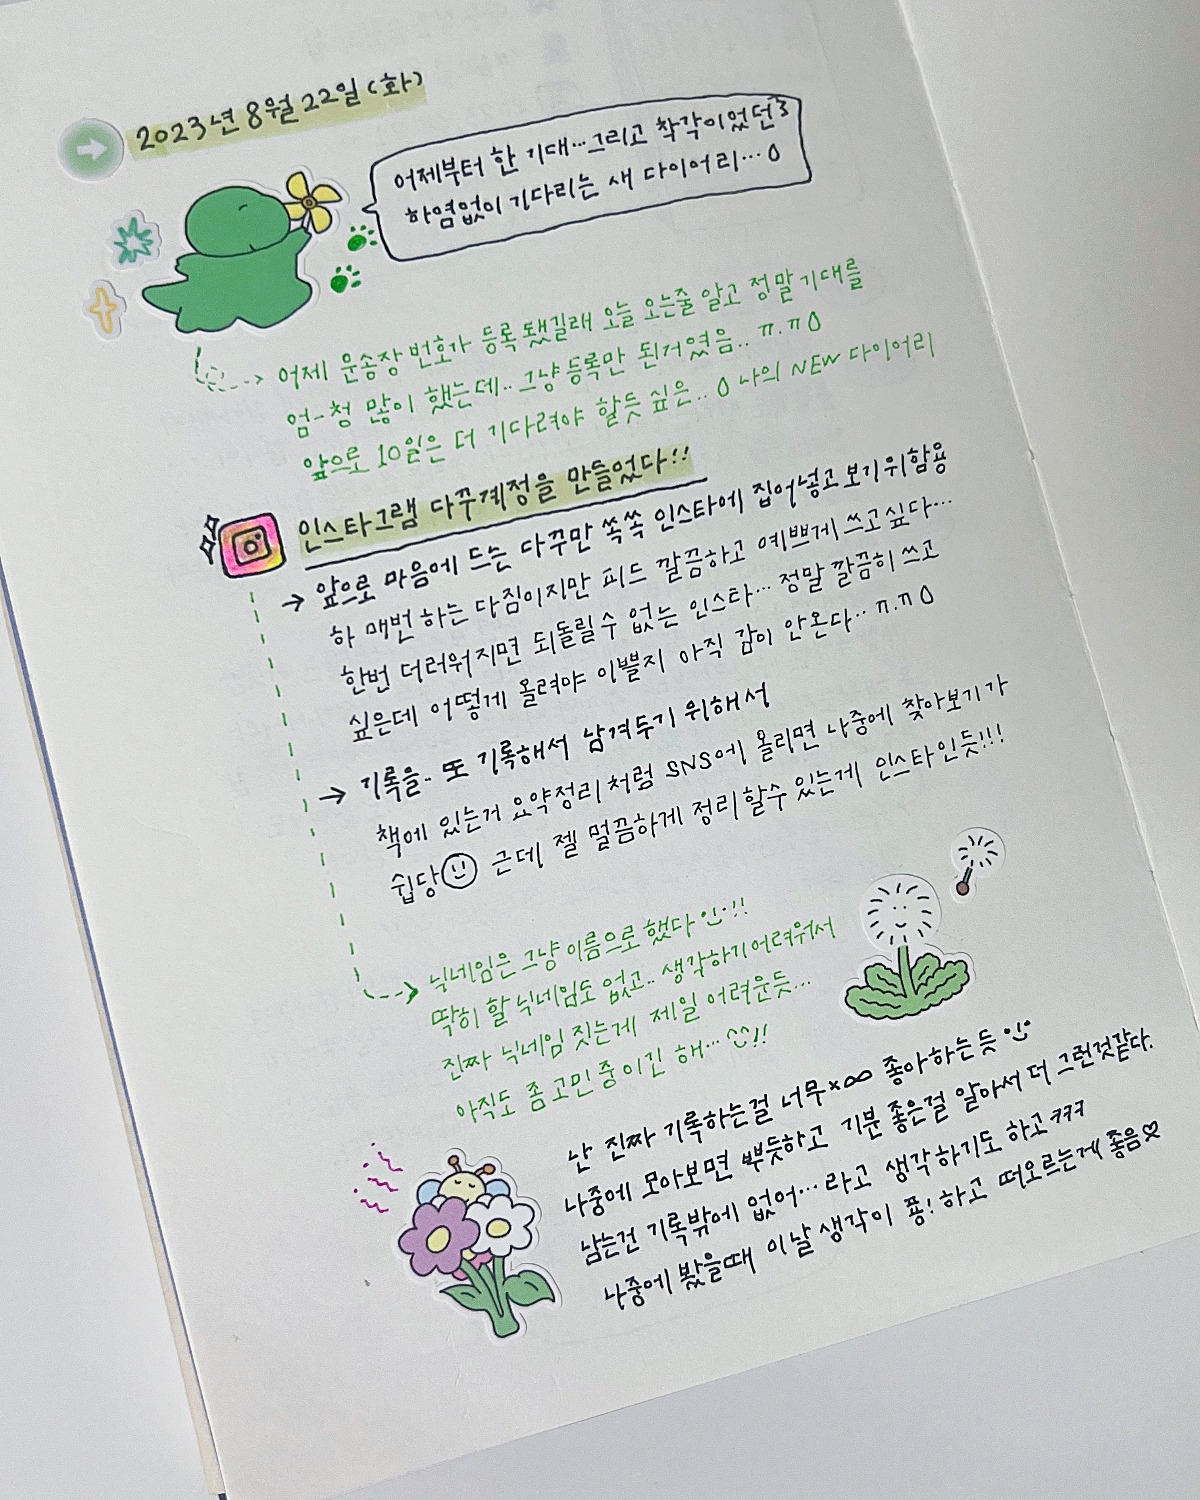 2023년 8월 22일 (화)
어제부터 한 기대...그리고 착각이었던
하염없이 기다리는 새 다이어리...
어제 운송장 번호가 등록 됐길래 오늘 오는줄 알고 정말 기대를
엄-청 많이 했는데.. 그냥 등록만 된거였음.. ㅠ.ㅠ
앞으로 10일은 더 기다려야 할듯 싶은.. 나의 NEW 다이어리
인스타그램 다꾸계정을 만들었다!!
→ 앞으로 마음에 드는 다꾸만 쏙쏙 인스타에 집어넣고 보기 위함용
하 매번 하는 다짐이지만 피드 깔끔하고 예쁘게 쓰고싶다...
한번 더러워지면 되돌릴수 없는 인스타... 정말 깔끔히 쓰고
싶은데 어떻게 올려야 이쁠지 아직 감이 안온다.. ㅠ.ㅠ
→ 기록을.. 또 기록해서 남겨두기 위해서
책에 있는거 요약정리 처럼 SNS에 올리면 나중에 찾아보기가
쉽당 근데 젤 멀끔하게 정리할수 있는게 인스타인듯!!!
닉네임은 그냥 이름으로 했다!!
딱히 할 닉네임도 없고.. 생각하기 어려워서
진짜 닉네임 짓는게 제일 어려운듯...
아직도 좀 고민 중이긴 해...!!
난 진짜 기록하는걸 너무×∞ 좋아하는 듯
나중에 모아보면 뿌듯하고 기분 좋은걸 알아서 더 그런것같다.
남는건 기록밖에 없어... 라고 생각하기도 하고 ㅋㅋㅋ
나중에 봤을때 이날 생각이 뿅! 하고 떠오르는게 좋음♡